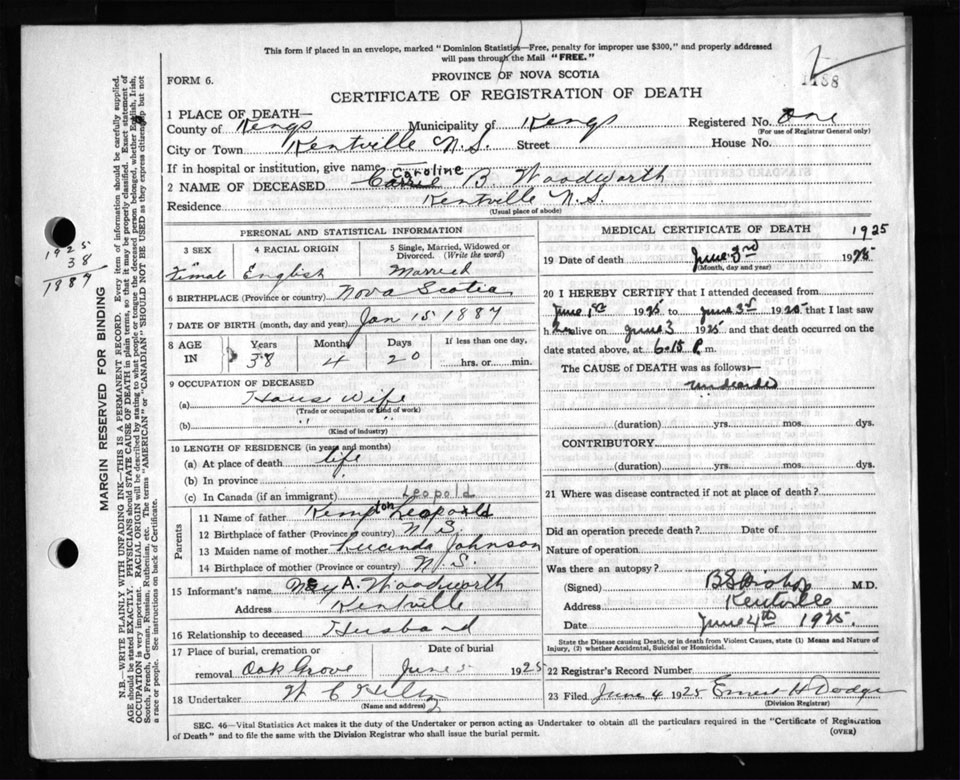 This form if placed in an envelope, marked "Dominion Statistics—Free, penalty for improper use $300," and properly addressed
will pass through the Mail "FREE."
1188
PROVINCE OF NOVA SCOTIA
FORM 6.
CERTIFICATE OF REGISTRATION OF DEATH
1 PLACE OF DEATH—
County of Kings Municipality of Kings Registered No. One
(For use of Registrar General only)
City or Town Kentville N.S. Street House No.
If in hospital or institution, give name
Caroline
2 NAME OF DECEASED Carrie B. Woodworth
Residence Kentville N.S.
(Usual place of abode)
PERSONAL AND STATISTICAL INFORMATION
3 SEX 4 RACIAL ORIGIN 5 Single, Married, Widowed or Divorced. (Write the word)
Femal English Married
6 BIRTHPLACE (Province or country) Nova Scotia
7 DATE OF BIRTH (month, day and year) Jan 15 1887
8 AGE IN Years Months Days If less than one day,
38 4 20 hrs. or min.
9 OCCUPATION OF DECEASED
(a) House Wife
(Trade or occupation or kind of work)
(b) "
(Kind of industry)
10 LENGTH OF RESIDENCE (in years and months)
(a) At place of death life
(b) In province
(c) In Canada (if an immigrant)
Leopold
Parents
11 Name of father Kempton Leopold
12 Birthplace of father (Province or country) N.S.
13 Maiden name of mother Lucinda Johnson
14 Birthplace of mother (Province or country) N.S.
15 Informant's name A. Woodworth
Address Kentville
16 Relationship to deceased Husband
17 Place of burial, cremation or removal Date of burial
Oak Grove June 5 1925
18 Undertaker W C
(Name and address)
MEDICAL CERTIFICATE OF DEATH 1925
19 Date of death June 3rd 1925
(Month, day and year)
20 I HEREBY CERTIFY that I attended deceased from
June 1st 1925 to June 3rd 1925 that I last saw
h alive on June 3 1925 and that death occurred on
date stated above, at 6.15 P. m.
The CAUSE of DEATH was as follows:—
(duration) yrs. mos. dys.
CONTRIBUTORY
(duration) yrs. mos. dys.
21 Where was disease contracted if not at place of death?
Did an operation precede death? Date of
Nature of operation
Was there an autopsy?
(Signed) B S Bishop M.D.
Address Kentville
Date June 4th 1925.
State the Disease causing Death, or in death from Violent Causes, state (1) Means and Nature of
Injury, (2) whether Accidental, Suicidal or Homicidal.
22 Registrar's Record Number
23 Filed June 4 1925 Ernest H Dodge
(Division Registrar)
SEC. 46—Vital Statistics Act makes it the duty of the Undertaker or person acting as Undertaker to obtain all the particulars required in the "Certificate of Registration
of Death" and to file the same with the Division Registrar who shall issue the burial permit.
(OVER)
1925
38
1887
MARGIN RESERVED FOR BINDING
N.B.—WRITE PLAINLY WITH UNFADING INK—THIS IS A PERMANENT RECORD. Every item of information should be carefully supplied.
AGE should be stated EXACTLY. PHYSICIANS should STATE CAUSE OF DEATH in plain terms, so that it may be properly classified. Exact statement of
OCCUPATION is very important. RACIAL ORIGIN will be described by stating to what people or tongue the deceased person belonged, whether English, Irish,
Scotch, French, German, Russian, Ruthenian, etc. The terms "AMERICAN" or "CANADIAN" SHOULD NOT BE USED as they express citizenship but not
a race or people. See instructions on back of Certificate.